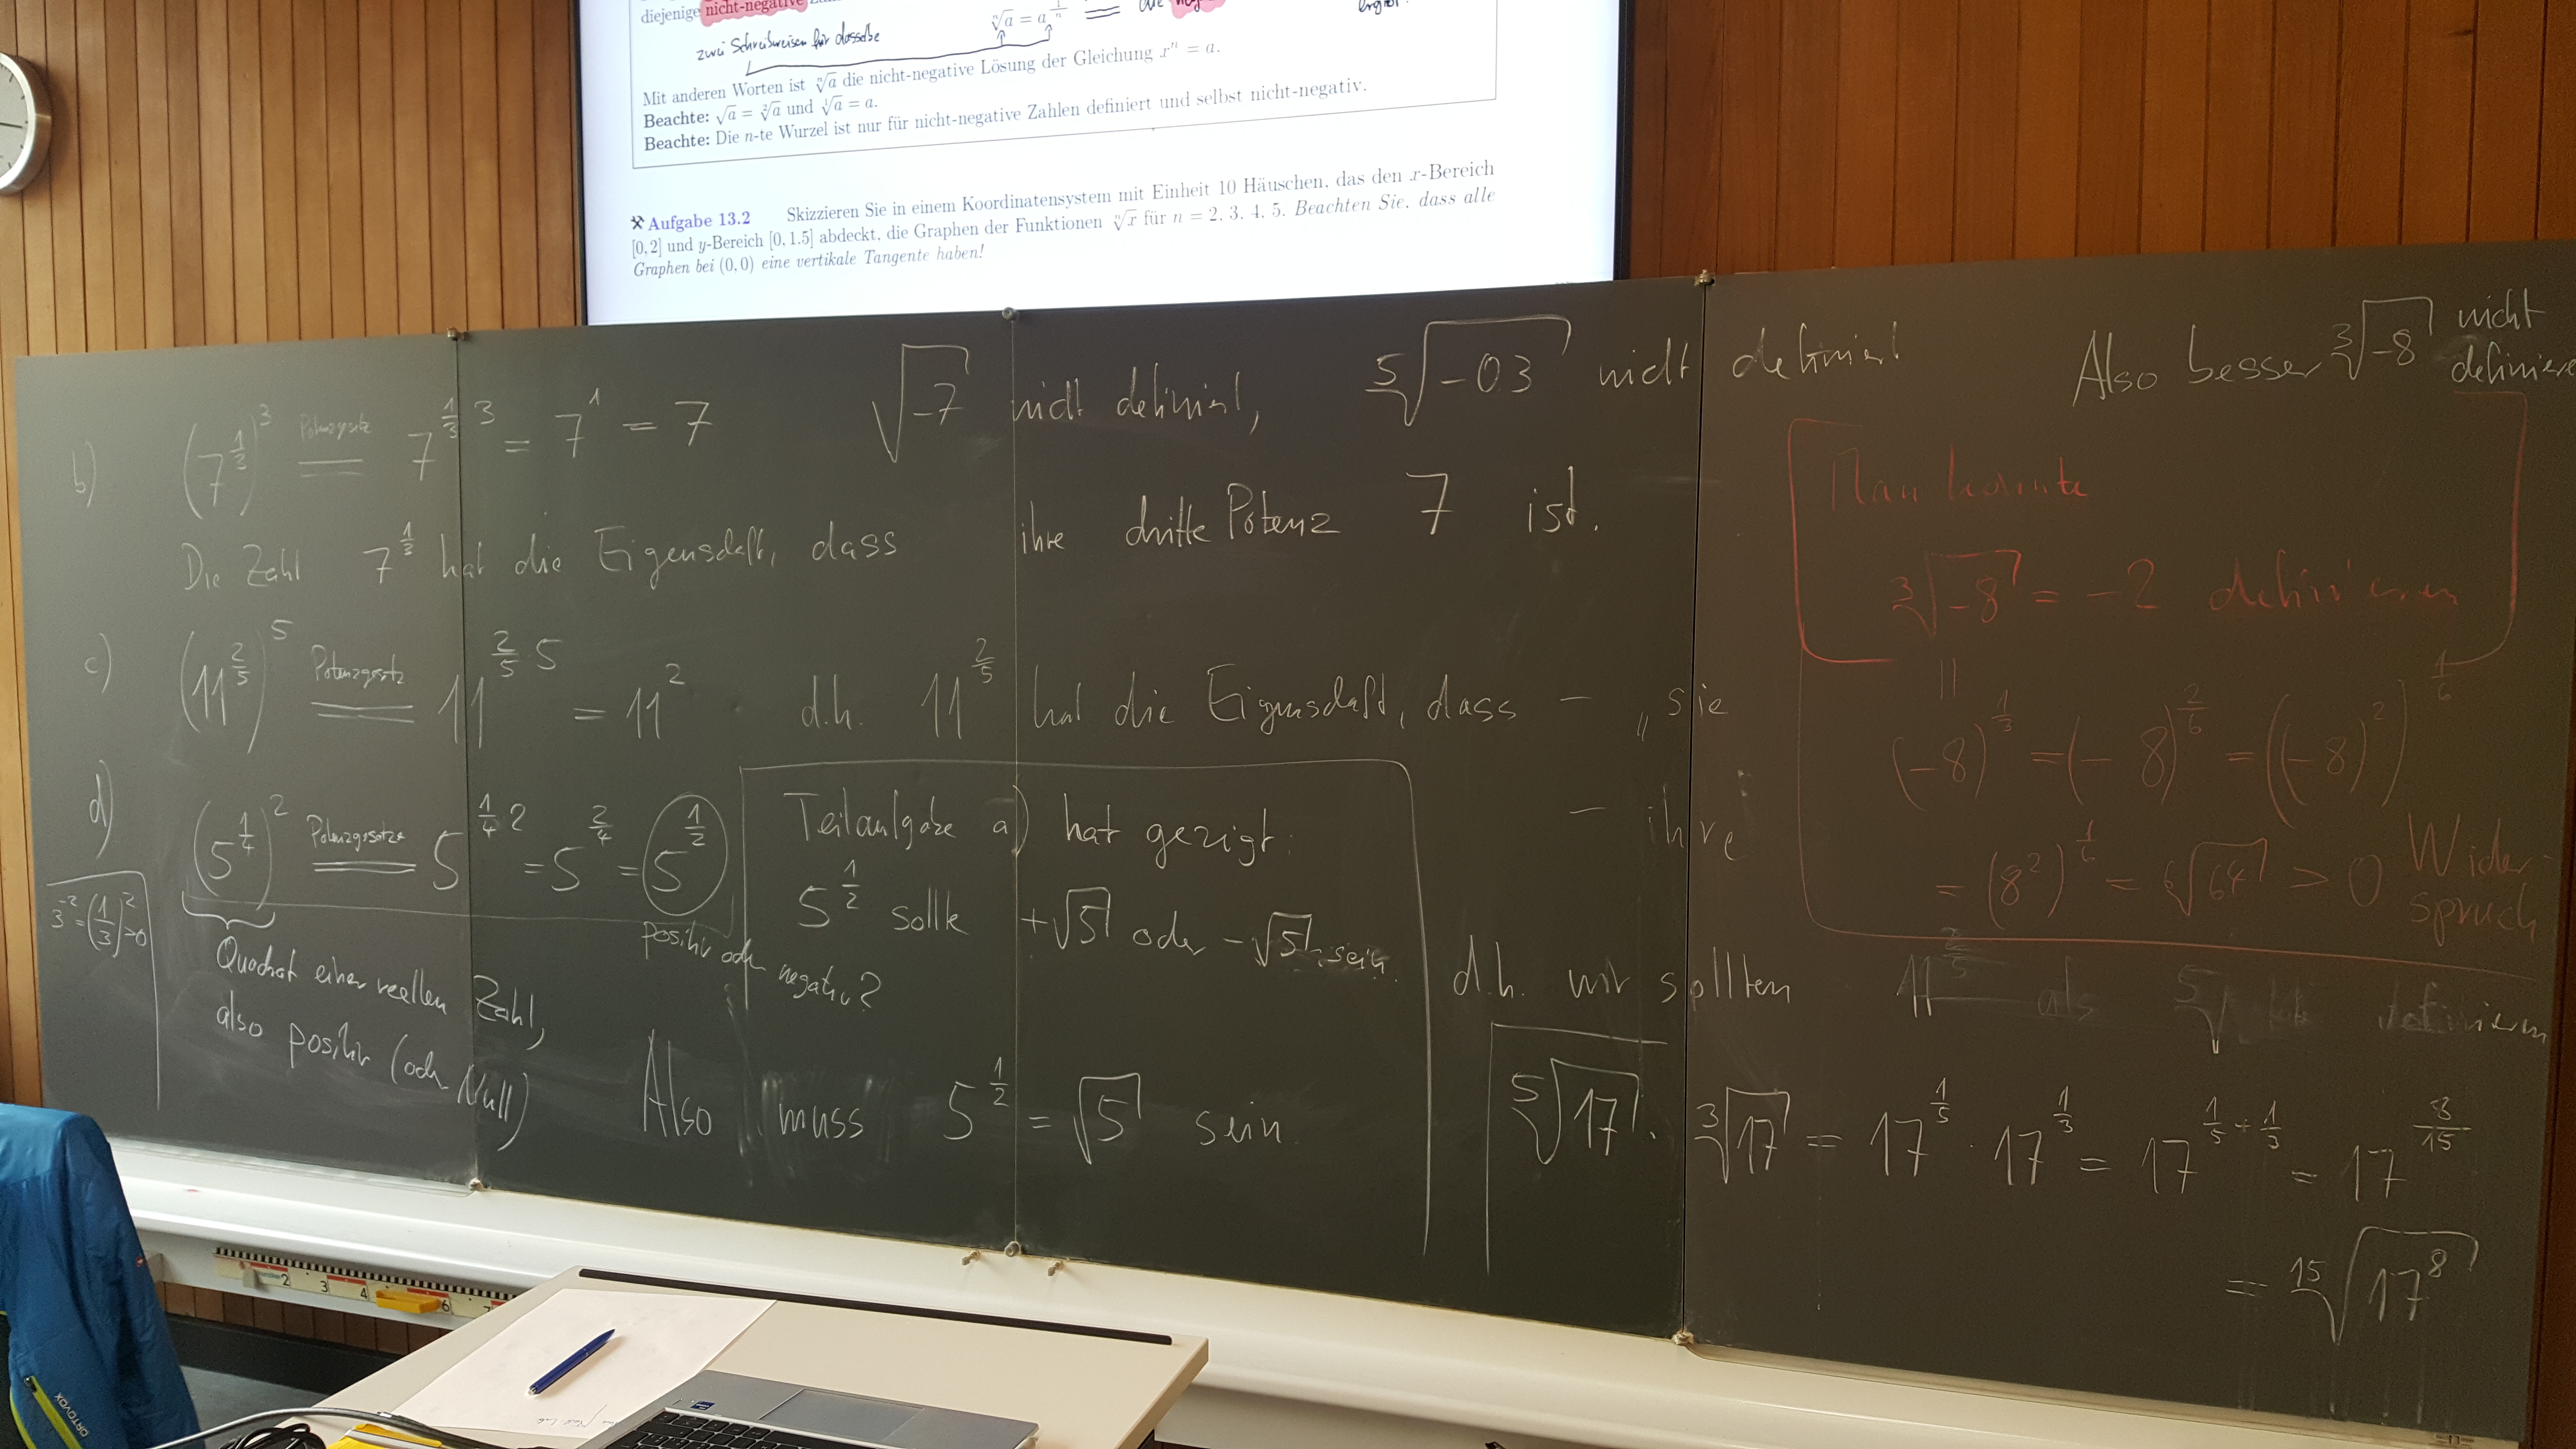 diejenige nicht-negative
zwei Schreibweisen für dasselbe
ⁿ√a = a^(1/n)
Mit anderen Worten ist ⁿ√a die nicht-negative Lösung der Gleichung xⁿ = a.
Beachte: √a = ²√a und ¹√a = a.
Beachte: Die n-te Wurzel ist nur für nicht-negative Zahlen definiert und selbst nicht-negativ.
Aufgabe 13.2 Skizzieren Sie in einem Koordinatensystem mit Einheit 10 Häuschen, das den x-Bereich
[0, 2] und y-Bereich [0, 1.5] abdeckt, die Graphen der Funktionen ⁿ√x für n = 2, 3, 4, 5. Beachten Sie, dass alle
Graphen bei (0, 0) eine vertikale Tangente haben!
√-7 nicht definiert, ⁵√-0.3 nicht definiert
Also besser ³√-8 nicht
definiert
b) (7^(1/3))^3 = 7^(1/3 · 3) = 7^1 = 7
Potenzgesetz
Die Zahl 7^(1/3) hat die Eigenschaft, dass ihre dritte Potenz 7 ist.
c) (11^(2/5))^5 = 11^(2/5 · 5) = 11^2 d.h. 11^(2/5) hat die Eigenschaft, dass – „sie
Potenzgesetz
– ihre
d) (5^(1/4))^2 = 5^(1/4 · 2) = 5^(2/4) = 5^(1/2)
Potenzgesetze
positiv oder
negativ?
3^-2 = (1/3)^2 > 0
Quadrat einer reellen Zahl,
also positiv (oder Null)
Teilaufgabe a) hat gezeigt:
5^(1/2) sollte +√5 oder -√5 sein.
Also muss 5^(1/2) = √5 sein
Man könnte
³√-8 = -2 definieren
=
(-8)^(1/3) = (-8)^(2/6) = ((-8)^2)^(1/6)
= (8^2)^(1/6) = ⁶√64 > 0 Wider-
spruch
d.h. wir sollten 11^(2/5) als ⁵√ definieren
⁵√17 · ³√17 = 17^(1/5) · 17^(1/3) = 17^(1/5 + 1/3) = 17^(8/15)
= ¹⁵√17^8
ORTOVOX
2 3 4 6 7